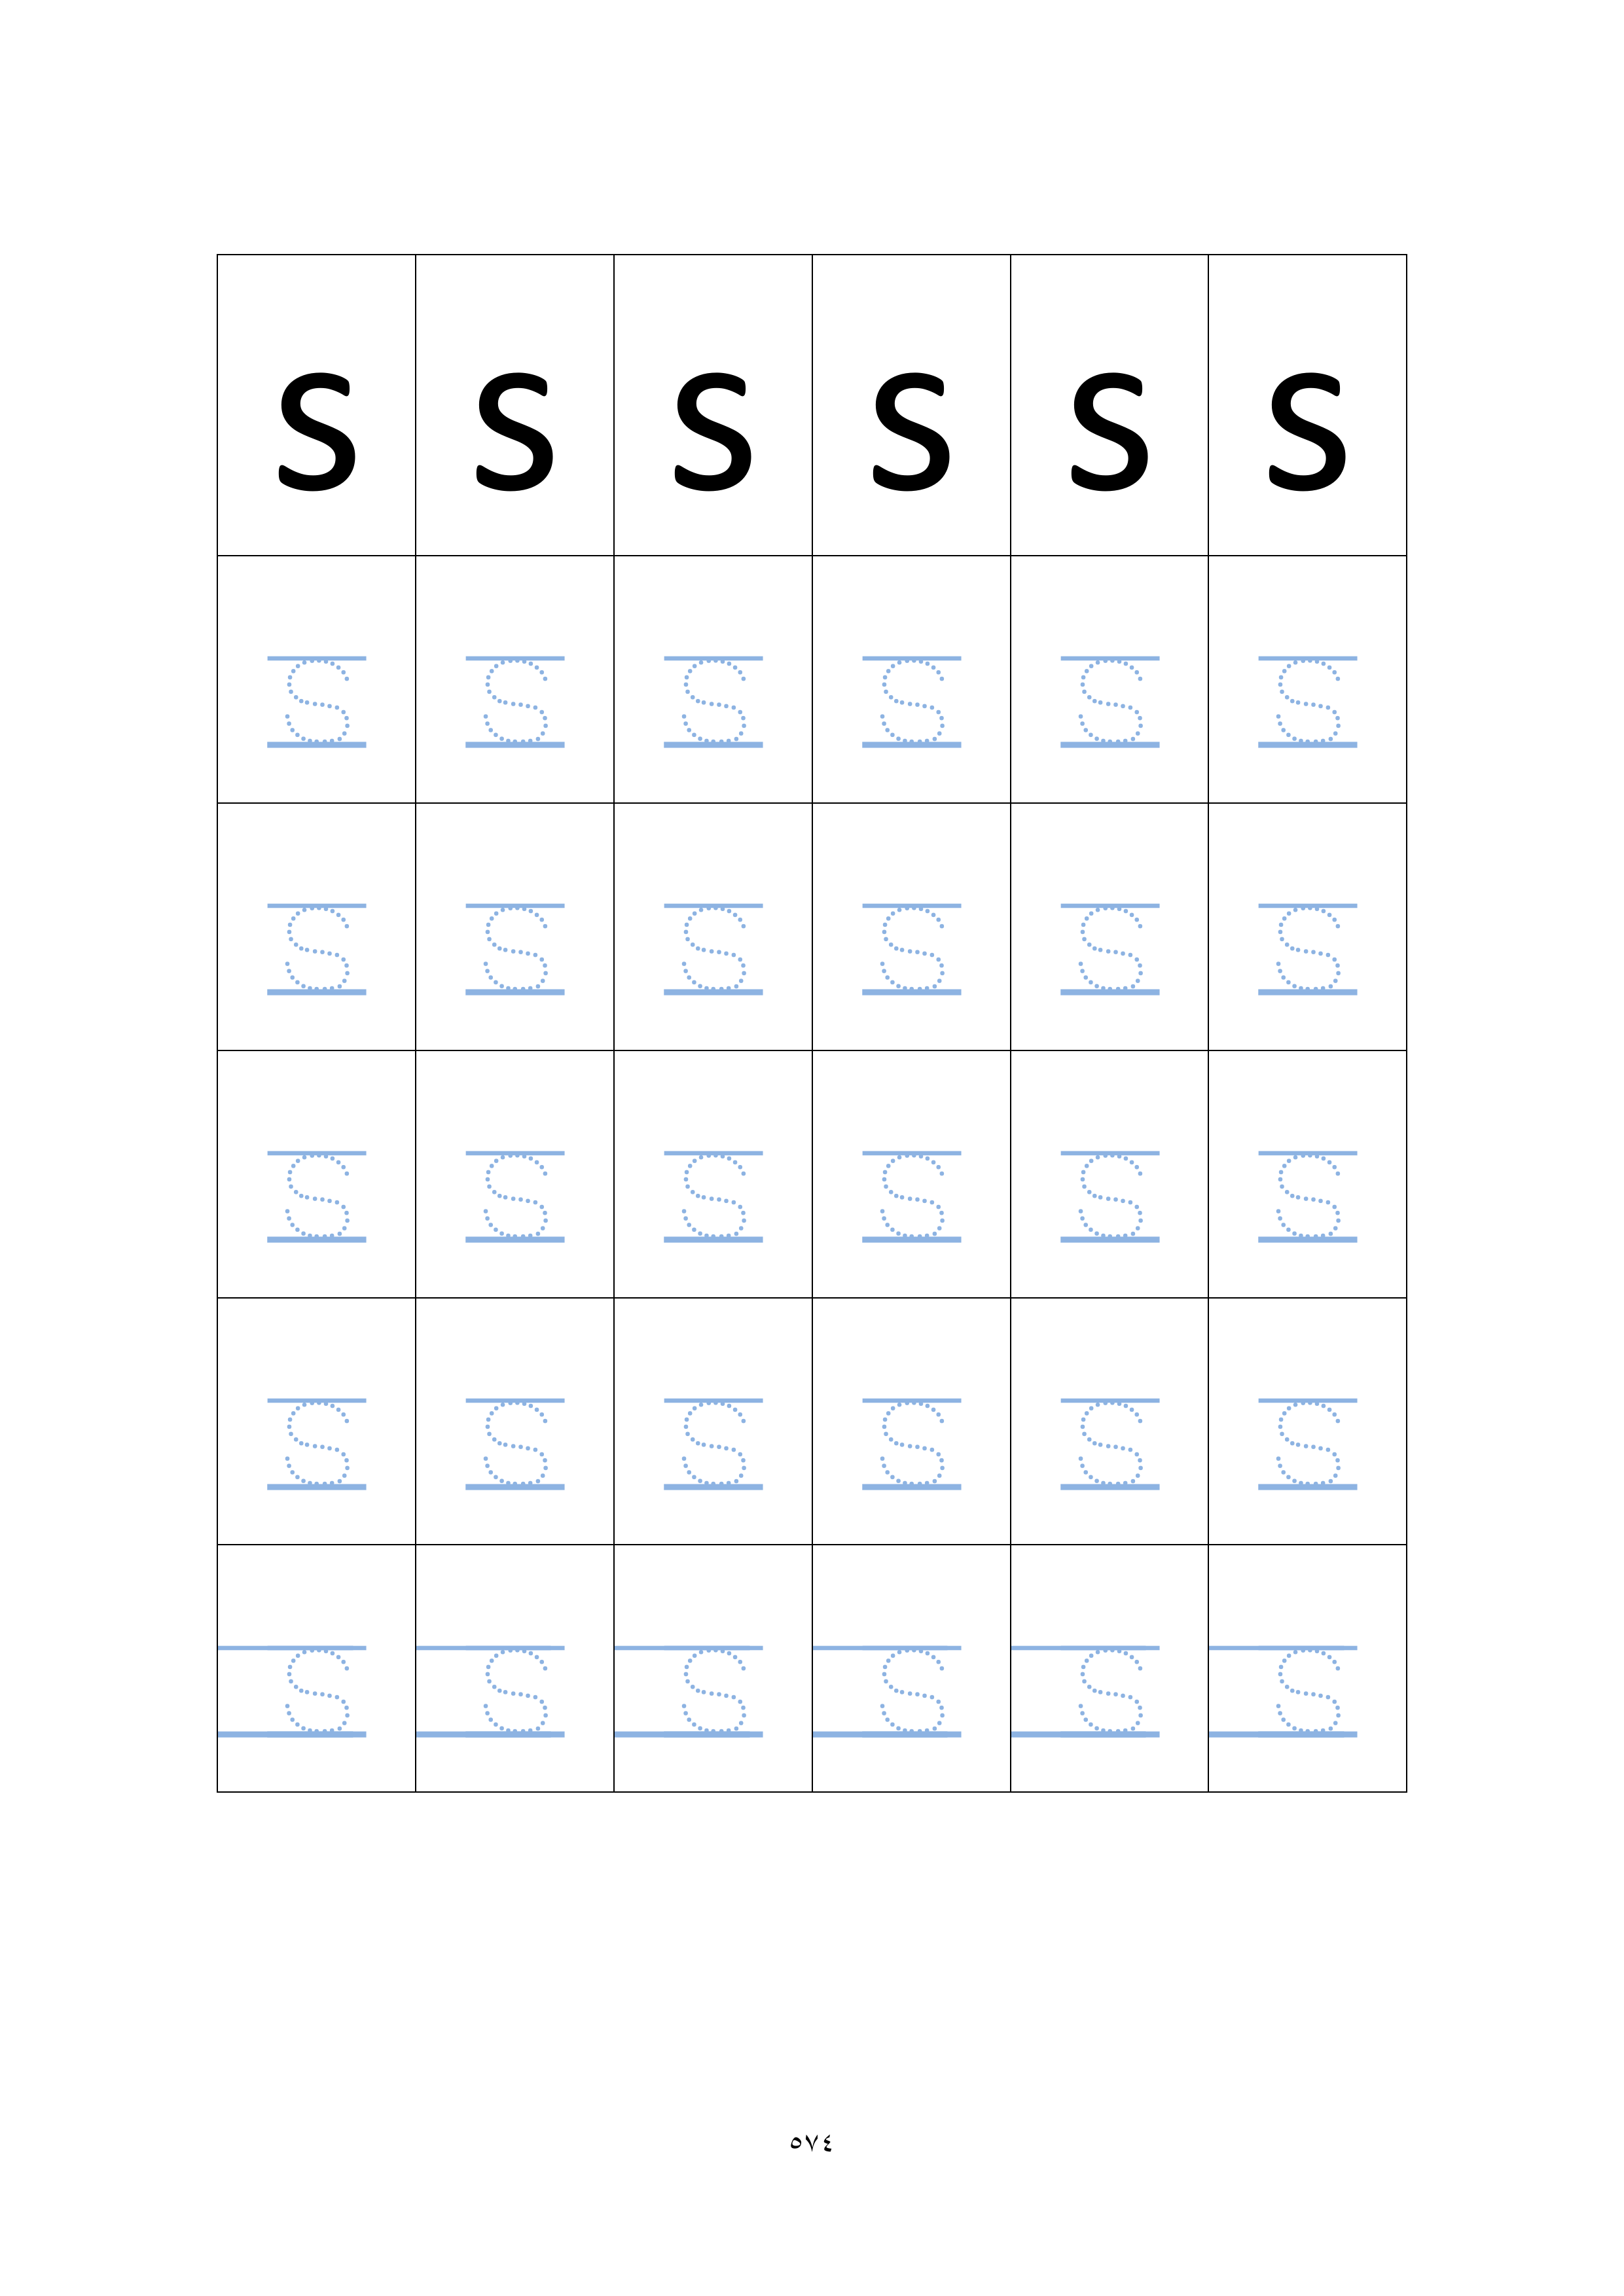 S S S S S S
S S S S S S
S S S S S S
S S S S S S
S S S S S S
S S S S S S
٥٧٤